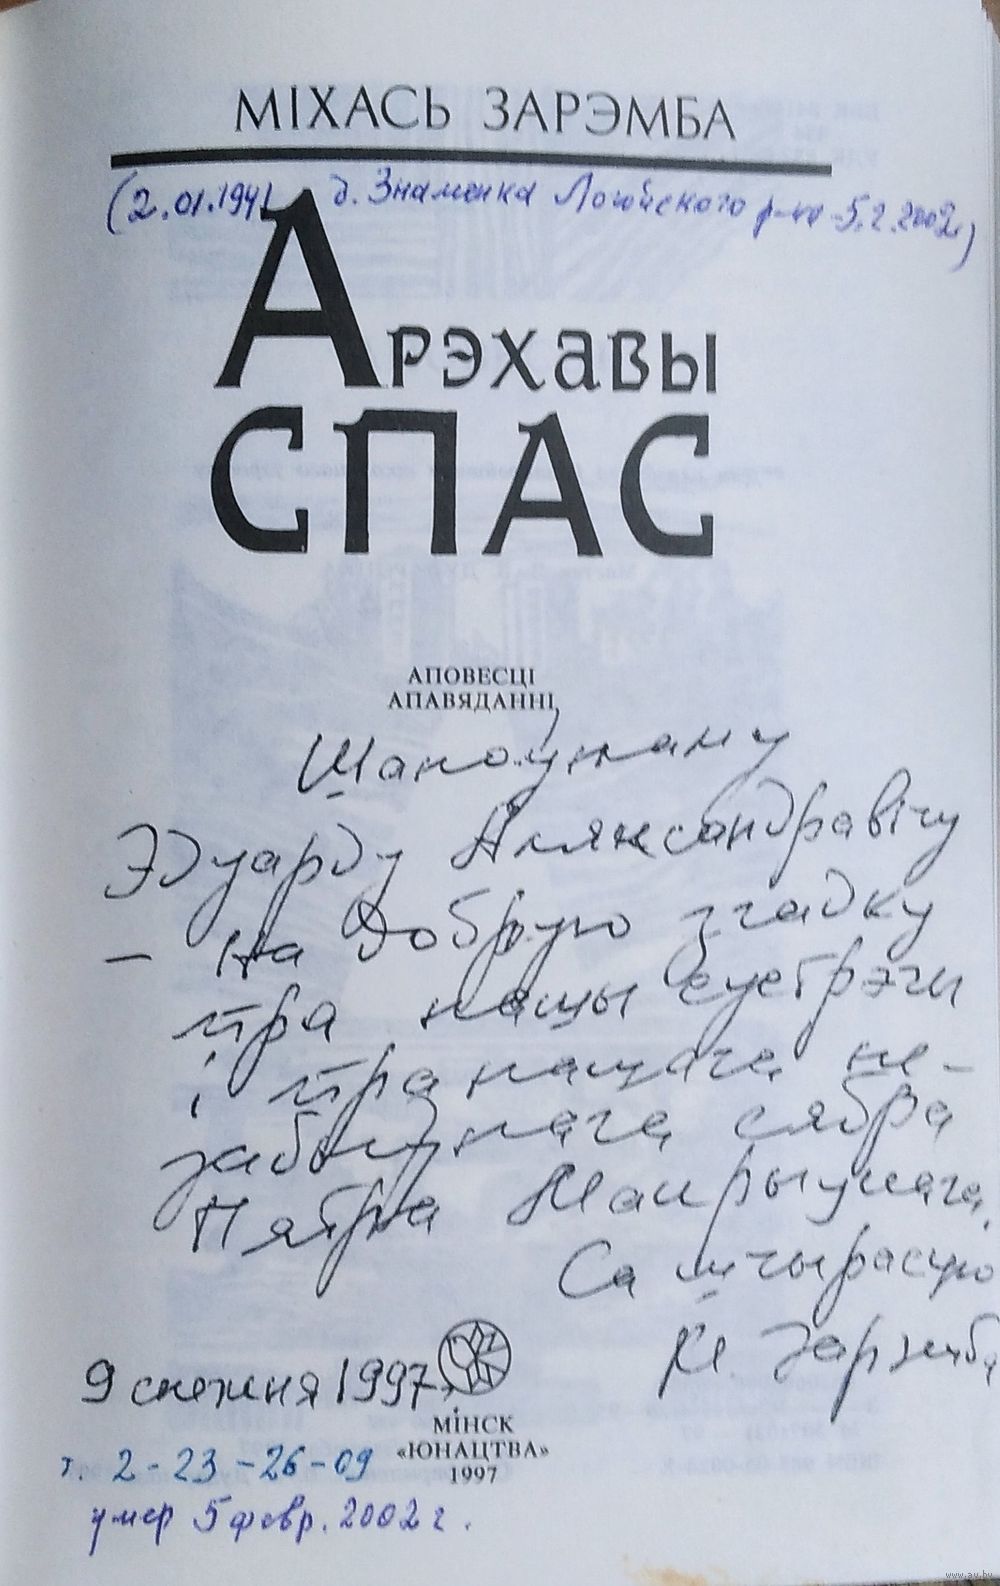 МІХАСЬ ЗАРЭМБА
(2.01.1941 д. Знаменка Логойского р-на - 5.2.2002г.)
АРЭХАВЫ
СПАС
АПОВЕСЦІ
АПАВЯДАННІ
Шаноўнаму
Эдуарду Аляксандравічу
– на добрую згадку
пра нашы сустрэчы
і пра нашага не-
забыўнага сябра
Пятра
Са шчырасцю
М. Зарэмба
9 снежня 1997
МІНСК
«ЮНАЦТВА»
1997
т. 2-23-26-09
умер 5 февр. 2002 г.
www.au.by